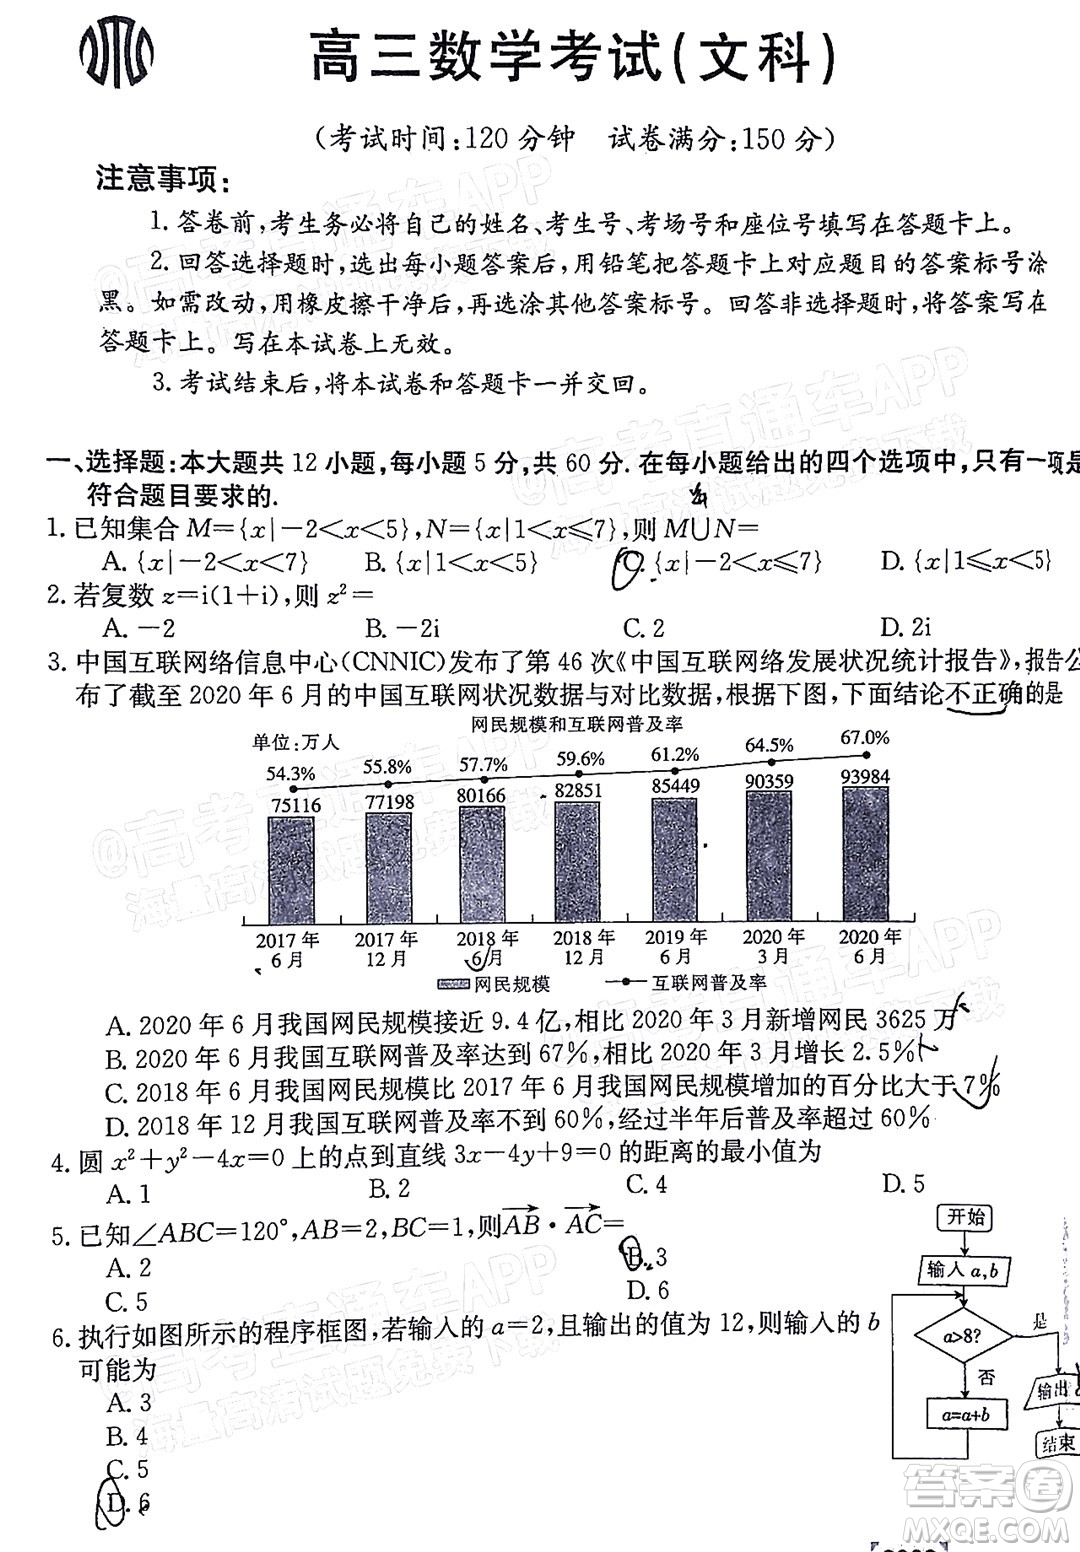 高三数学考试(文科)
(考试时间:120分钟 试卷满分:150分)
注意事项:
1.答卷前,考生务必将自己的姓名、考生号、考场号和座位号填写在答题卡上。
2.回答选择题时,选出每小题答案后,用铅笔把答题卡上对应题目的答案标号涂
黑。如需改动,用橡皮擦干净后,再选涂其他答案标号。回答非选择题时,将答案写在
答题卡上。写在本试卷上无效。
3.考试结束后,将本试卷和答题卡一并交回。
一、选择题:本大题共12小题,每小题5分,共60分.在每小题给出的四个选项中,只有一项是
符合题目要求的.
1.已知集合M={x|-2<x<5},N={x|1<x≤7},则M∪N=
A.{x|-2<x<7} B.{x|1<x<5} C.{x|-2<x≤7} D.{x|1≤x≤5}
2.若复数z=i(1+i),则z²=
A.-2 B.-2i C.2 D.2i
3.中国互联网络信息中心(CNNIC)发布了第46次《中国互联网络发展状况统计报告》,报告公
布了截至2020年6月的中国互联网状况数据与对比数据,根据下图,下面结论不正确的是
网民规模和互联网普及率
单位:万人
54.3% 55.8% 57.7% 59.6% 61.2% 64.5% 67.0%
75116 77198 80166 82851 85449 90359 93984
2017年6月 2017年12月 2018年6月 2018年12月 2019年6月 2020年3月 2020年6月
网民规模 互联网普及率
A.2020年6月我国网民规模接近9.4亿,相比2020年3月新增网民3625万
B.2020年6月我国互联网普及率达到67%,相比2020年3月增长2.5%
C.2018年6月我国网民规模比2017年6月我国网民规模增加的百分比大于7%
D.2018年12月我国互联网普及率不到60%,经过半年后普及率超过60%
4.圆x²+y²-4x=0上的点到直线3x-4y+9=0的距离的最小值为
A.1 B.2 C.4 D.5
5.已知∠ABC=120°,AB=2,BC=1,则AB·AC=
A.2 B.3
C.5 D.6
6.执行如图所示的程序框图,若输入的a=2,且输出的值为12,则输入的b
可能为
A.3
B.4
C.5
D.6
开始
输入a,b
a>8?
是
否
a=a+b
输出
结束
@高考直通车APP
海量高清试题免费下载
答案卷
MXQE.COM